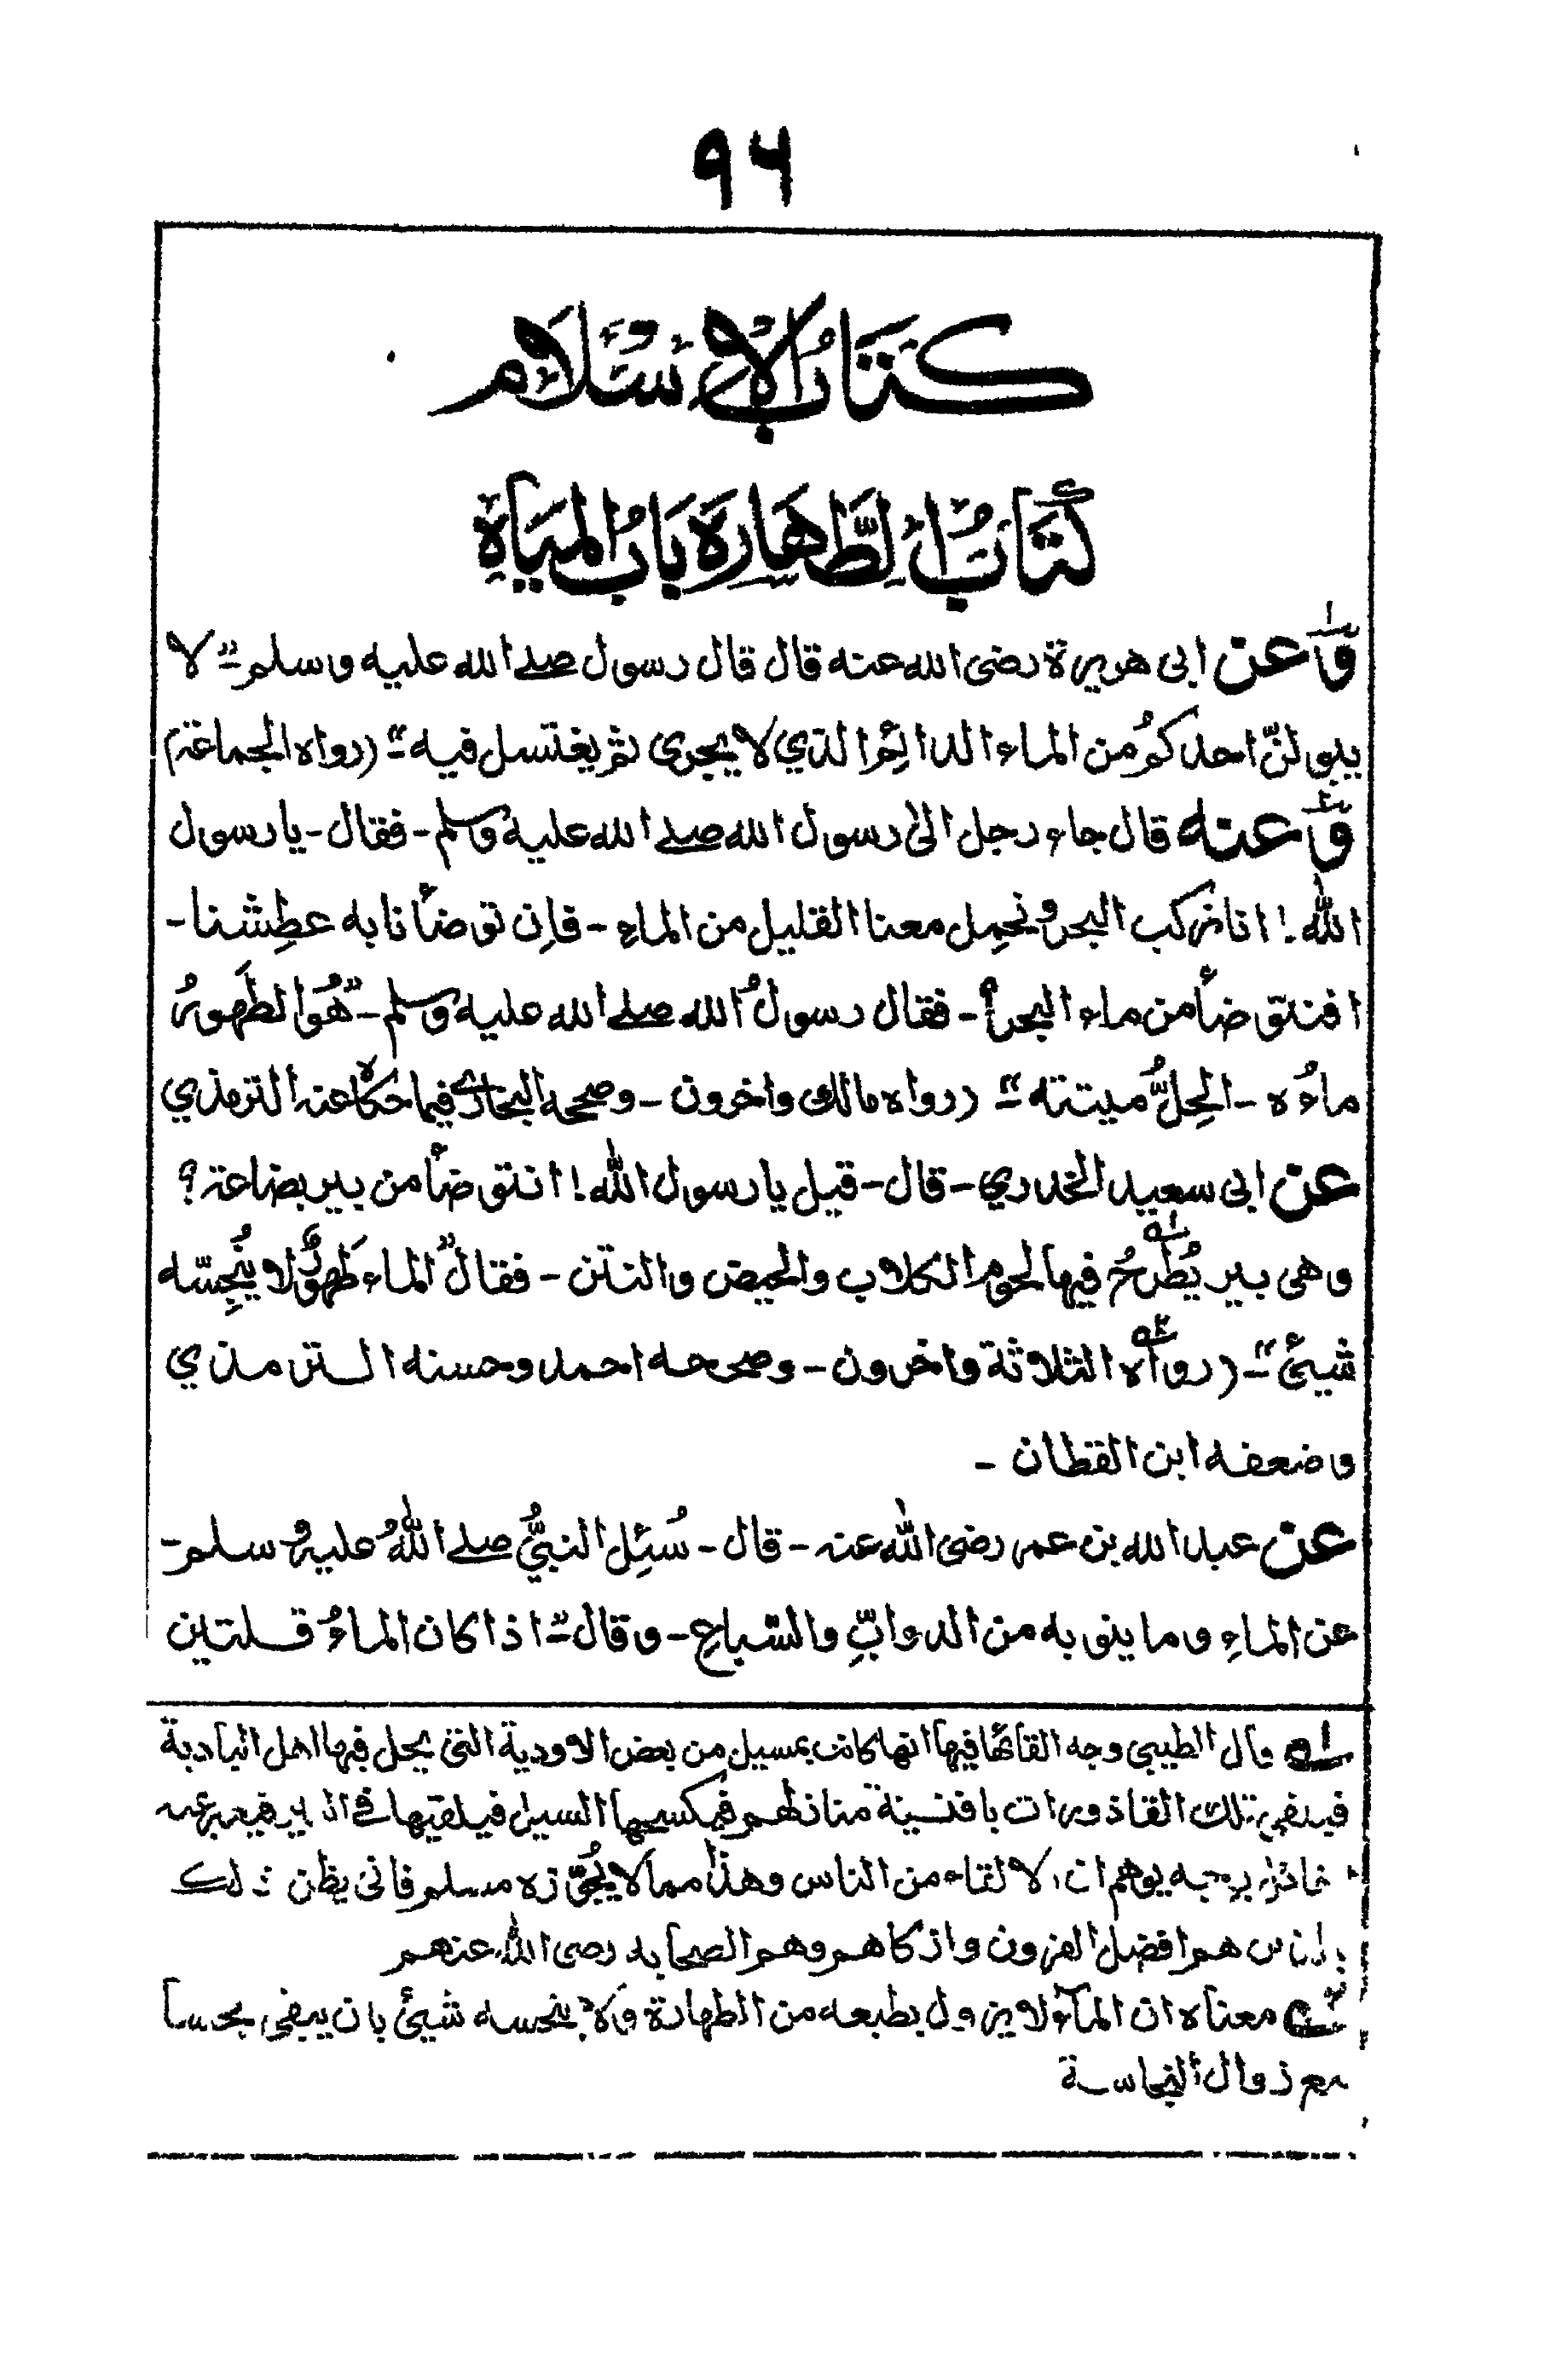 ۹۶
كِتَابُ الْإِسْلَام
كِتَابُ الطَّهَارَةِ بَابُ الْمِيَاهِ
ق۱ عن ابی هریرة رضی الله عنه قال قال رسول صلے الله علیه وسلم۔" لا
یبولنّ احدکُم من الماء الدائِم الذي لا یجری ثم یغتسل فیه"۔ (رواه الجماعة)
ق۲ عنه قال جاء رجل الیٰ رسول الله صلے الله علیه وسلم۔ فقال۔ یا رسول
الله! انا نرکب البحر ونحمِل معنا القلیل من الماءِ۔ فاِن توضأنا به عطِشنا۔
افنتوضأ من ماء البحر؟۔ فقال رسولُ الله صلے الله علیه وسلم۔ "هُوَ الطَهورُ
ماءُه۔ الحِلُّ میتته"۔ (رواه مالك واخرون۔ وصححه البخاری فیما حکاه عنه الترمذي
عن ابی سعید الخدري۔ قال۔ قیل یا رسول الله! انتوضأ من بیر بضاعة؟
وهی بیر یُطرَحُ۱ فیها لحوم الکلاب والحیض والنتن۔ فقال "الماء طَهورٌ لا یُنَجِسّه
شیئ"۔ (رواه۲ الثلاثة واخرون۔ وصححه احمد وحسنه الترمذي
وضعفه ابن القطان۔
عن عبد الله بن عمر رضی الله عنه۔ قال۔ سُئِل النبیُّ صلے اللهُ علیه وسلم۔
عن الماءِ وما ینوبه من الدوابِّ والسّباعِ۔ وقال۔" اذا کان الماءُ قلتین
۱ه قال الطیبی وجه القائها فیها انها کانت بمسیل من بعض الاودیة التی یحل فیها اهل البادیة
تلك القاذورات بافنیة منازلهم فیکسحها السیل فیلقیها فی
یوهم ان الالقاء من الناس وهذا مما لا یُجَوّزه مسلم فانی یظن ذلك
هم افضل القرون وازکاهم وهم الصحابه رضی الله عنهم
۲ه معناه ان المآء لا یزول بطبعه من الطهارة ولا ینجسه شیئ بان یبقی نجسا
مع زوال النجاسة